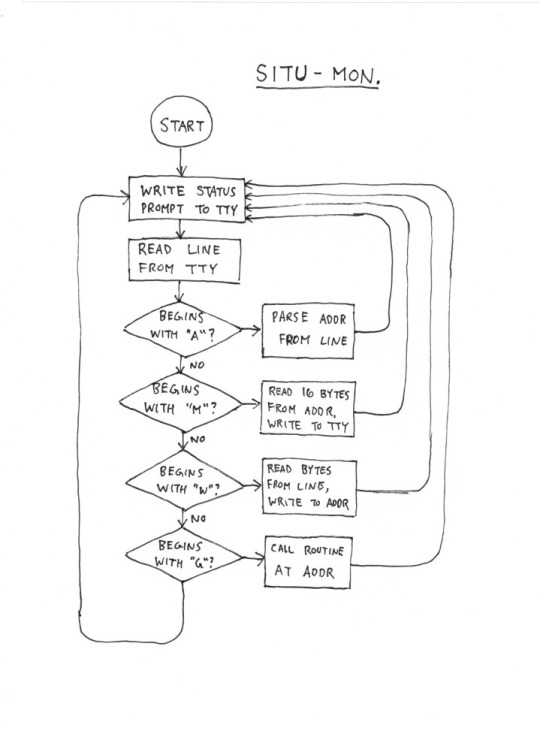 SITU-MON.
START
WRITE STATUS
PROMPT TO TTY
READ LINE
FROM TTY
BEGINS
WITH "A"?
PARSE ADDR
FROM LINE
NO
BEGINS
WITH "M"?
READ 16 BYTES
FROM ADDR,
WRITE TO TTY
NO
BEGINS
WITH "W"?
READ BYTES
FROM LINE,
WRITE TO ADDR
NO
BEGINS
WITH "G"?
CALL ROUTINE
AT ADDR